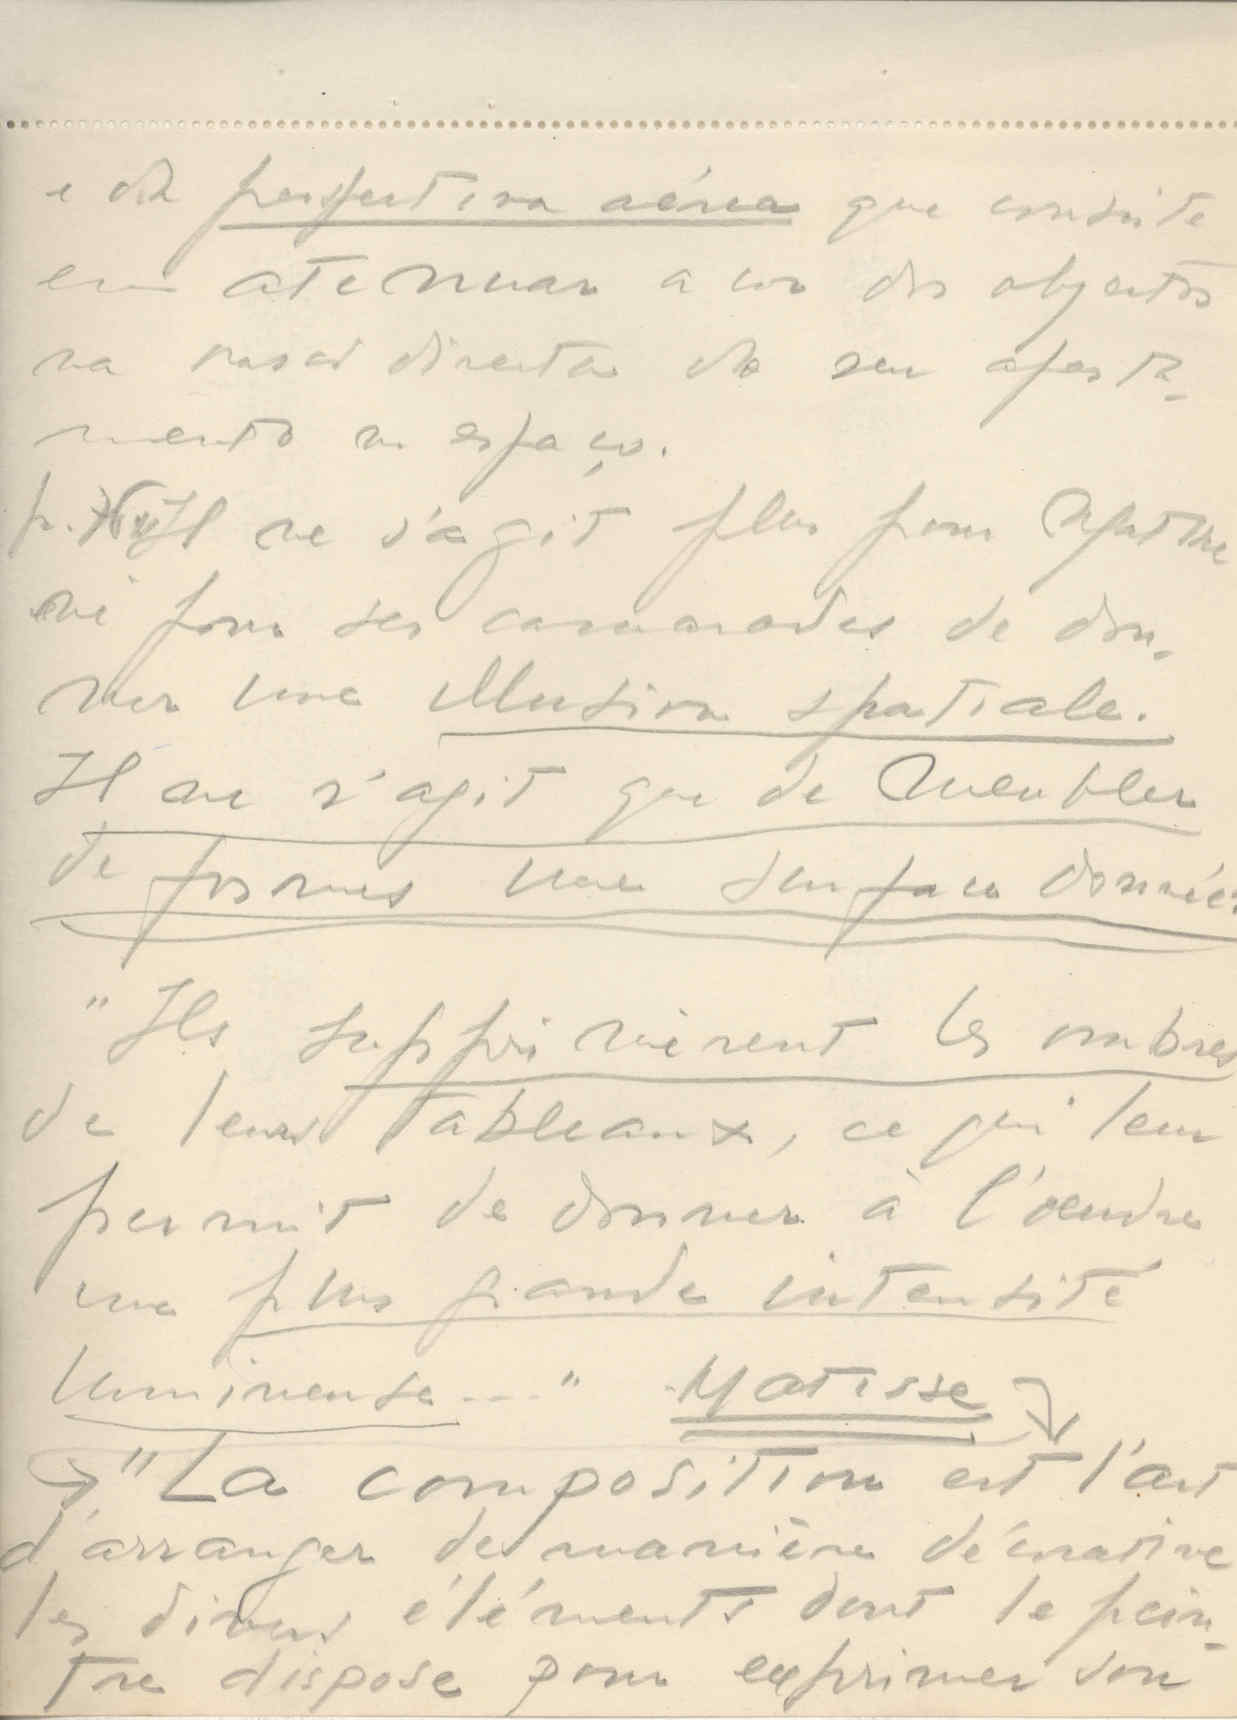 e da perspectiva aérea que consiste
em atenuar a cor dos objectos
na razão directa do seu afasta-
mento no espaço.
p. Il ne s'agit plus pour
ni pour ses camarades de don-
ner une illusion spatiale.
Il ne s'agit que de meubler
de formes une surface donnée.
"Ils supprimèrent les ombres
de leurs tableaux, ce qui leur
permit de donner à l'oeuvre
une plus grande intensité
lumineuse ---" Matisse
"La composition est l'art
d'arranger de manière décorative
les divers éléments dont le pein-
tre dispose pour exprimer son